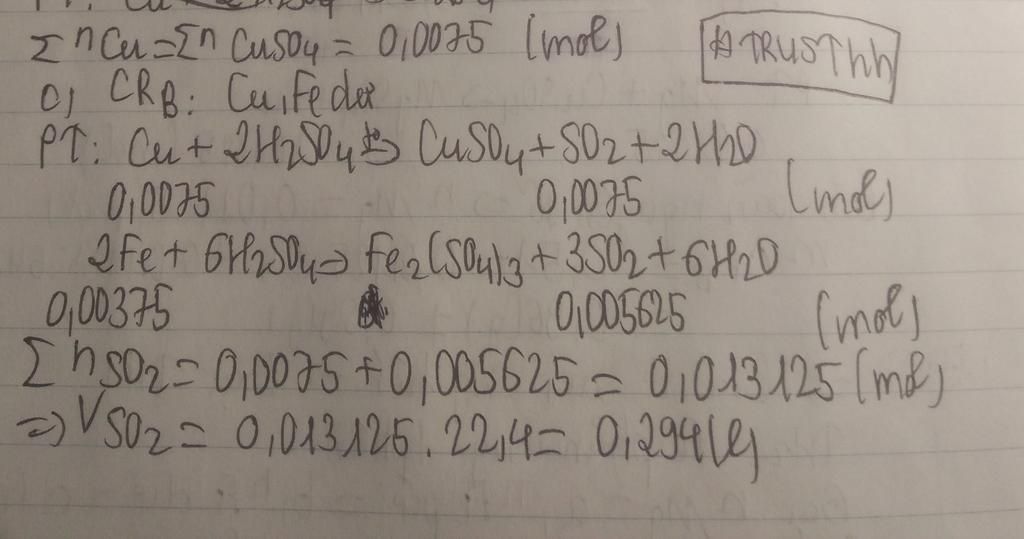 Σ nCu = Σn CuSO4 = 0,0075 (mol)
#TRUSThh
c) CRB: Cu, Fe dư
PT: Cu + 2H2SO4 → CuSO4 + SO2 + 2H2O
0,0075 0,0075 (mol)
2Fe + 6H2SO4 → Fe2(SO4)3 + 3SO2 + 6H2O
0,00375 0,005625 (mol)
Σ nSO2 = 0,0075 + 0,005625 = 0,013125 (mol)
=> VSO2 = 0,013125 . 22,4 = 0,294 (l)